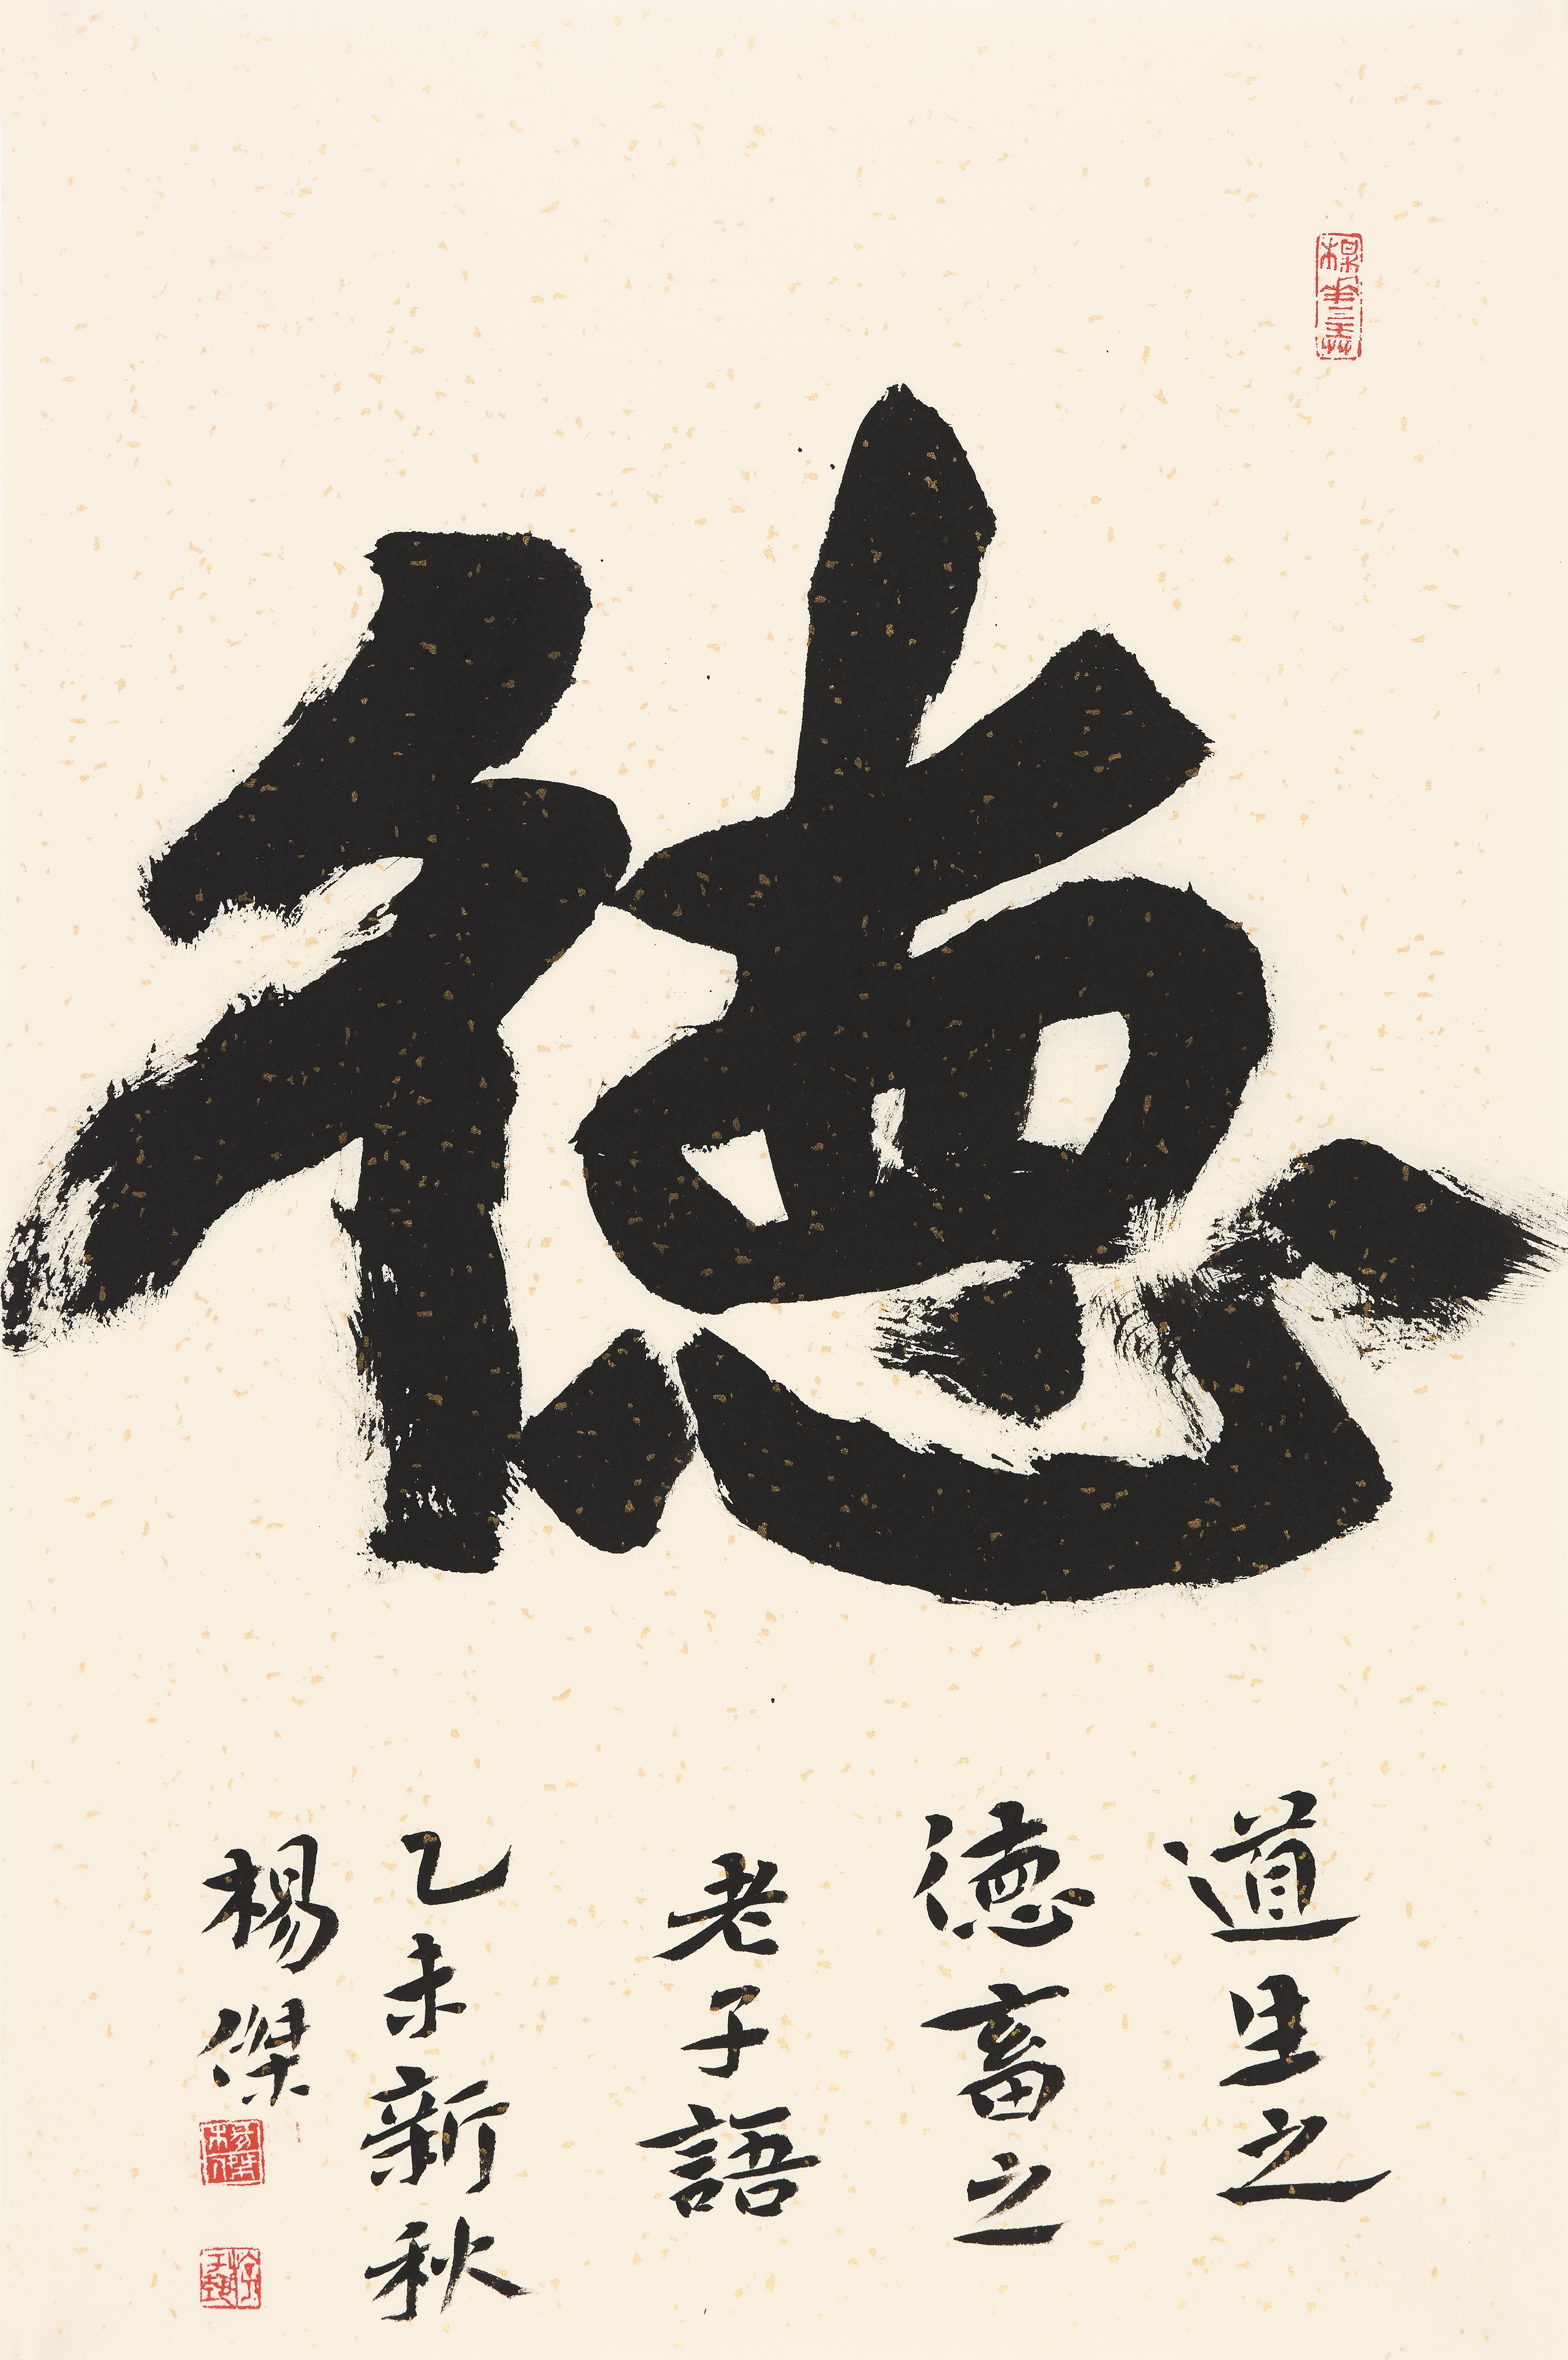 德
道生之
德畜之
老子語
乙未新秋
楊傑